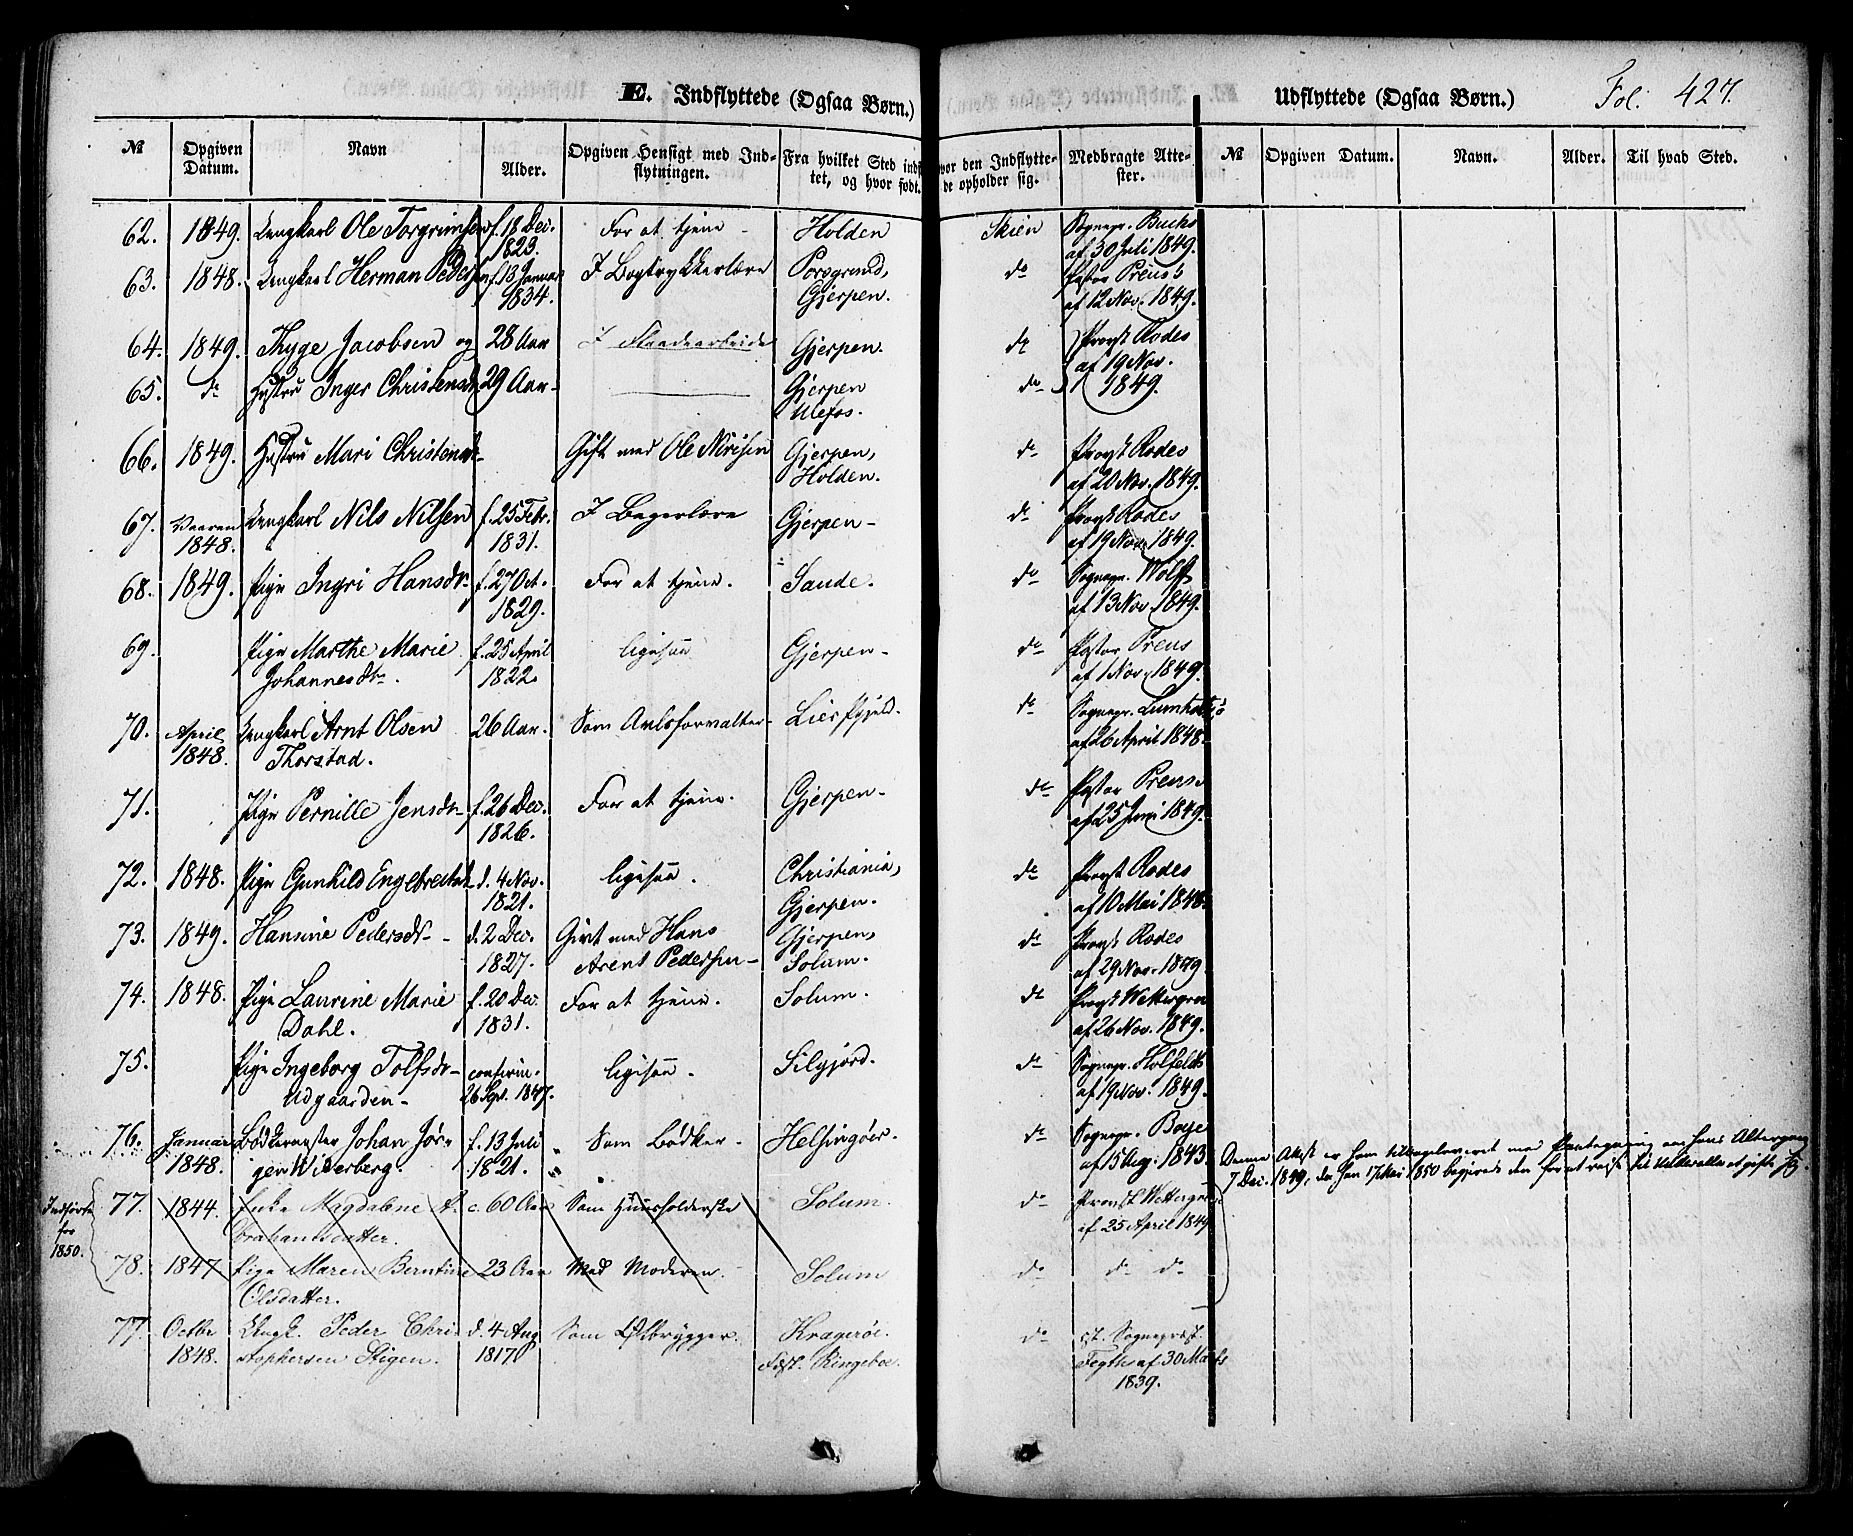 E. Indflyttede (Ogsaa Børn.)
Udflyttede (Ogsaa Børn.)
Fol: 427.
№ Opgiven Datum. Navn Alder. Opgiven Hensigt med Indflytningen. Fra hvilket Sted indf tet, og hvor født. vor den Indflyttede opholder sig. Medbragte Attester. № Opgiven Datum. Navn. Alder. Til hvad Sted.
62. 1849. Ungkarl Ole Torgrimsen f. 18 Dec. 1823. For at tjene - Holden Skien Sognepr. Buchs af 30 Juli 1849.
63. 1848. Ungkarl Herman Peders f. 13 Janua 1834. I Bogtrykkerlære Porsgrund, Gjerpen. do Pastor Preus's af 12 Nov. 1849.
64. 1849. Thyge Jacobsen og 28 Aar I Gjerpen. do Provst Rodes af 19 Nov. 1849.
65. do Hustru Inger Christensdr 29 Aar - Gjerpen Ulefos. do
66. 1849. Hustru Mari Christensdr Gift med Ole Gjerpen, Holden. do Provst Rodes af 20 Nov. 1849.
67. Vaaren 1848. Ungkarl Nils Nilsen f. 25 Febr. 1831. I Bagerlære Gjerpen - do Provst Rodes af 19 Nov. 1849.
68. 1849. Pige Ingri Hansdr f. 27 Oct. 1829. For at tjene. Saude. do Sognepr. Wolff af 13 Nov. 1849.
69. Pige Marthe Marie Johannesdr. f. 25 April 1822. ligesaa Gjerpen - do Pastor Preus af 1 Nov. 1849.
70. April 1848. Ungkarl Arnt Olsen Thorstad. 26 Aar. Som Avlsforvalter - Lier do Sognepr. Lumholtz's af 26 April 1848.
71. Pige Pernille Jensdr - f. 26 Dec. 1826. For at tjene. Gjerpen - do Pastor Preus af 25 Juni 1849.
72. 1848. Pige Gunhild Engebretsdr d. 4 Nov. 1821. ligesaa. Christiania, Gjerpen. do Provst Rodes af 10 Mai 1848.
73. 1849. Hansine Pedersdr - d. 2 Dec. 1827. Givt med Hans Arent Pedersen - Gjerpen, Solum. do Provst Rodes af 29 Nov. 1849.
74. 1848. Pige Laurine Marie Dahl. f. 20 Dec. 1831. For at tjene. Solum. do Provst Wettergren af 26 Nov. 1849.
75. Pige Ingeborg Tolfsdr Udgaarden - confirm. 26 Sept. 1847. ligesaa. Silgjord. do Sognepr. Holfeldts af 19 Nov. 1849.
76. Januar 1848. Bødkermester Johan Jørgen Wiverberg. f. 13 Juli 1821. Som Bødker - Helsingøer. do Sognepr. Boye af 15 Aug. 1843.
Denne Attest er ham tilbageleveret med Paategning om hans Altergang
7 Dec. 1849, da han 17 Mai 1850 begjerede den for at reise til
Indførte for 1850.
77. 1844. Enke Magdalene Abrahamsdatter. c. 60 Aar Som Huusholderske Solum. do Provst Wettergr af 25 April 1849
78. 1847 Pige Maren Berntine Olsdatter. 23 Aar Med Moderen. Solum do do do
77. Octbr 1848. Ungk. Peder Christophersen Stigen. d. 4 Aug 1817 Som Ølbrygger. Kragerøe. Født. Ringeboe. do cst. Sognepræst Fegths af 30 Marts 1839.